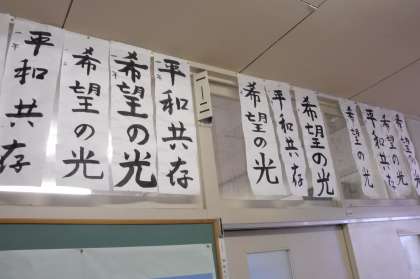 平和共存
希望の光
希望の光
平和共存
一 二
希望の光
平和共存
希望の光
希望の光
平和共存
希望の光